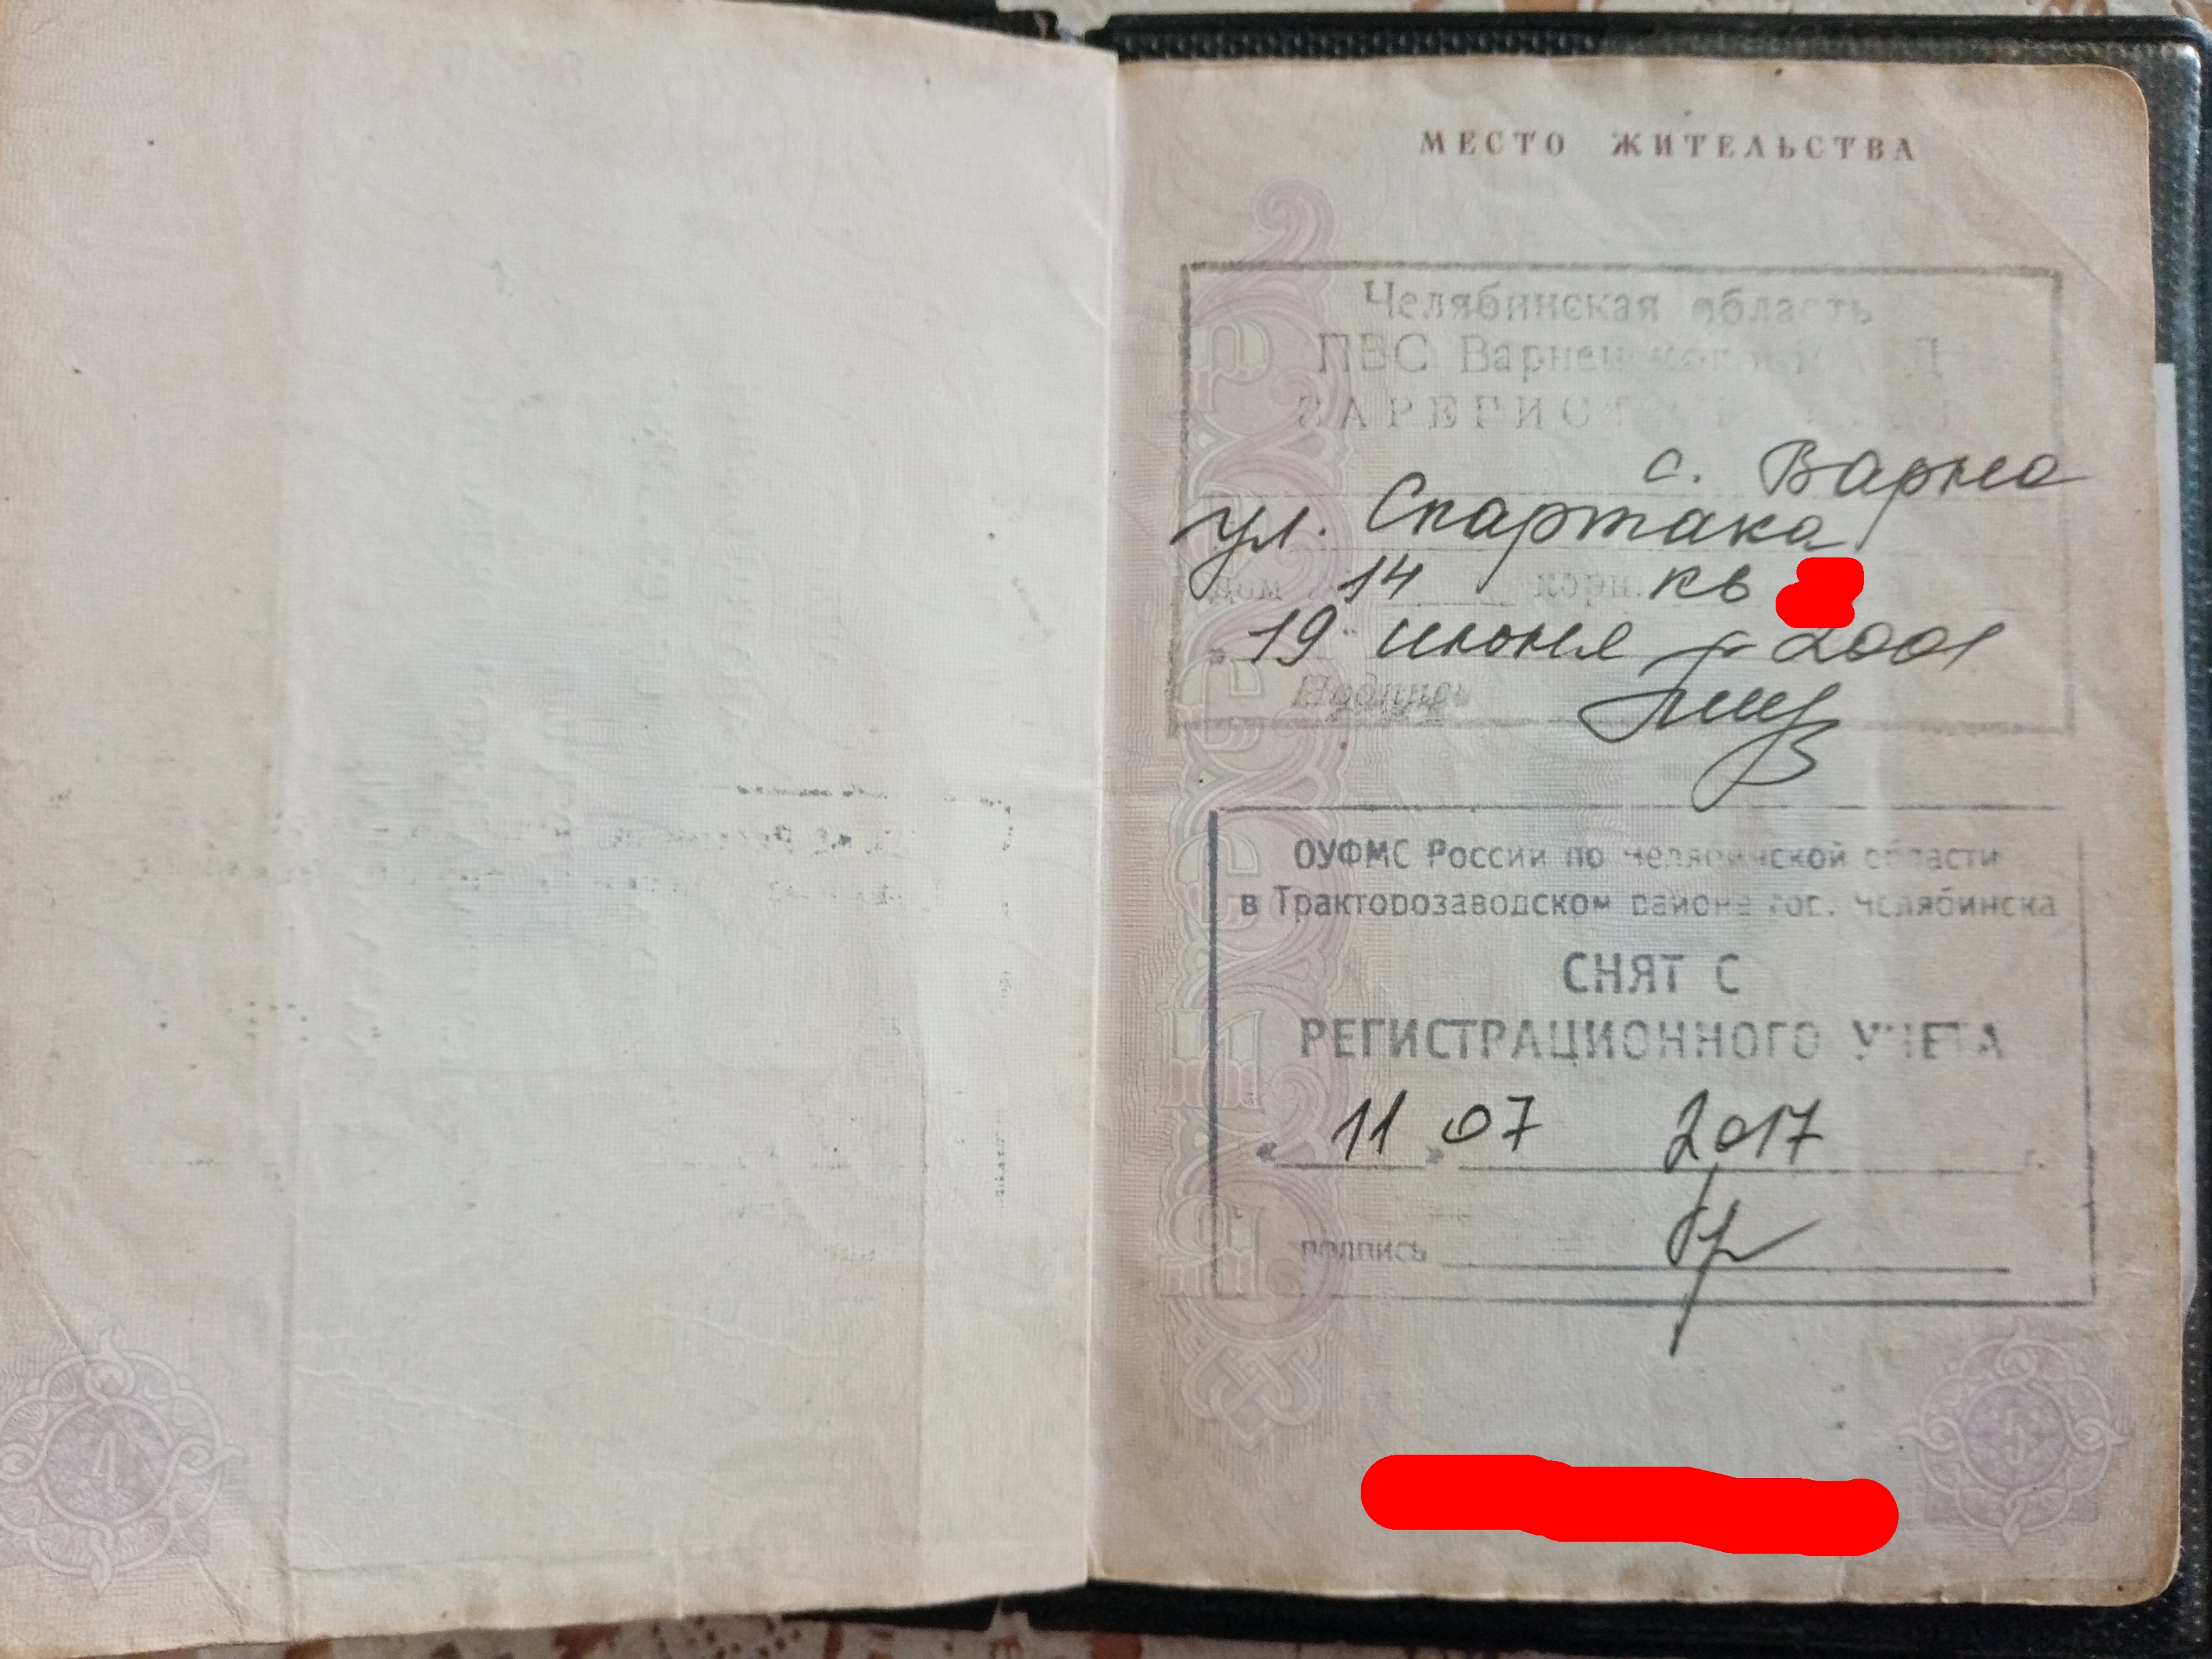 МЕСТО ЖИТЕЛЬСТВА
Челябинская область
ПВС Варненского
ЗАРЕГИСТ
с. Варна
ул. Спартака
дом 14 корп. кв
19 июня 2001
Подпись
ОУФМС России по Челябинской области
в Тракторозаводском районе гор. Челябинска
СНЯТ С
РЕГИСТРАЦИОННОГО УЧЕТА
« 11 » 07 2017 г.
подпись
4
5